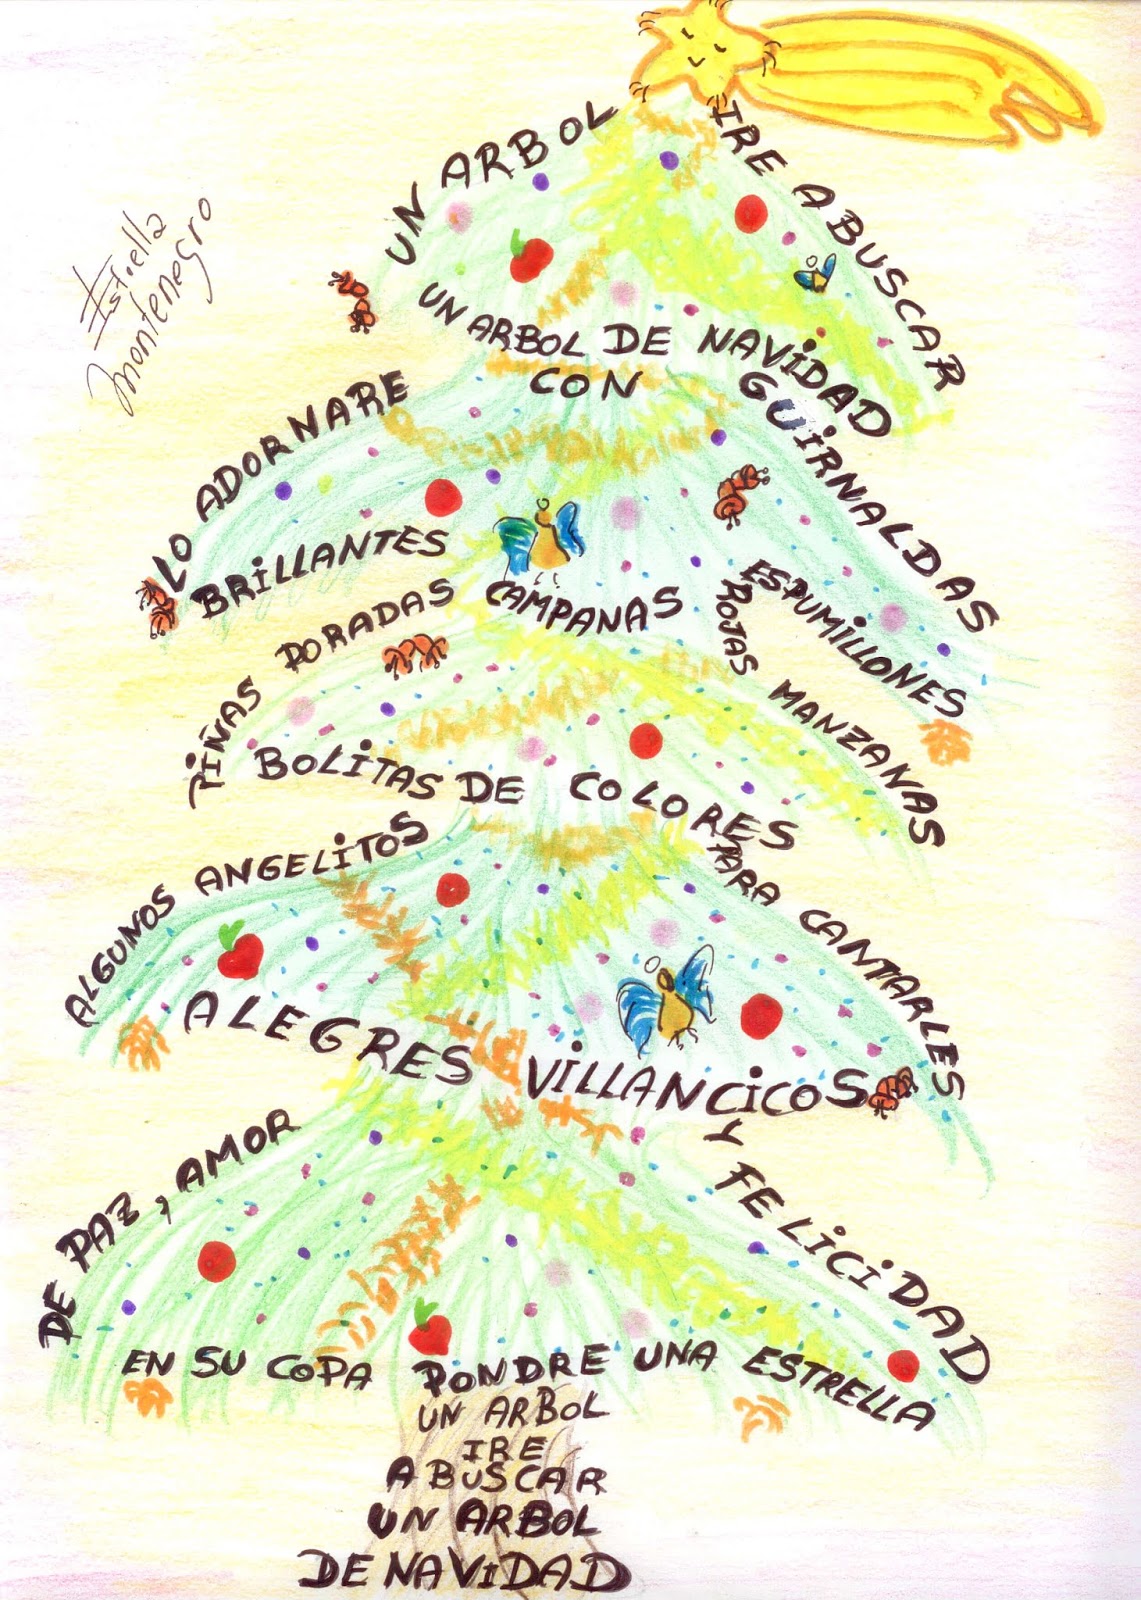 UN ARBOL
IRE A BUSCAR
UN ARBOL DE NAVIDAD
LO ADORNARE
CON
GUIRNALDAS
BRILLANTES
CAMPANAS
ESPUMILLONES
PIÑAS DORADAS
ROJAS MANZANAS
BOLITAS DE COLORES
ALGUNOS ANGELITOS
PARA CANTARLES
ALEGRES VILLANCICOS
DE PAZ, AMOR
Y FELICIDAD
EN SU COPA PONDRE UNA ESTRELLA
UN ARBOL
IRE
A BUSCAR
UN ARBOL
DE NAVIDAD
Montenegro